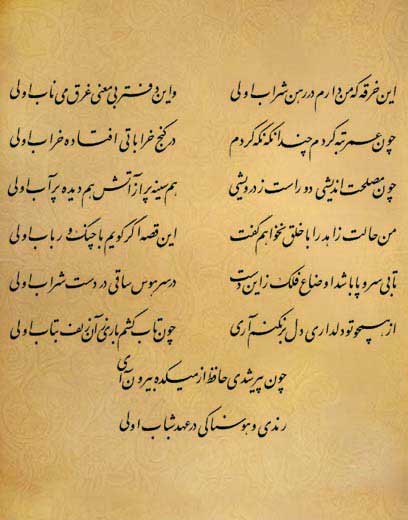 این خرقه که من دارم در رهن شراب اولی واین دفتر بی معنی غرق می ناب اولی
چون عمر تبه کردم چندانکه نگه کردم در کنج خراباتی افتاده خراب اولی
چون مصلحت اندیشی دور است ز درویشی هم سینه پر از آتش هم دیده پر آب اولی
من حالت زاهد را با خلق نخواهم گفت این قصه اگر گویم با چنگ و رباب اولی
تا بی سر و پا باشد اوضاع فلک زاین دست در سر هوس ساقی در دست شراب اولی
از همچو تو دلداری دل برنکنم آری چون تاب کشم باری زآن زلف بتاب اولی
چون پیر شدی حافظ از میکده بیرون آی
رندی و هوسناکی در عهد شباب اولی